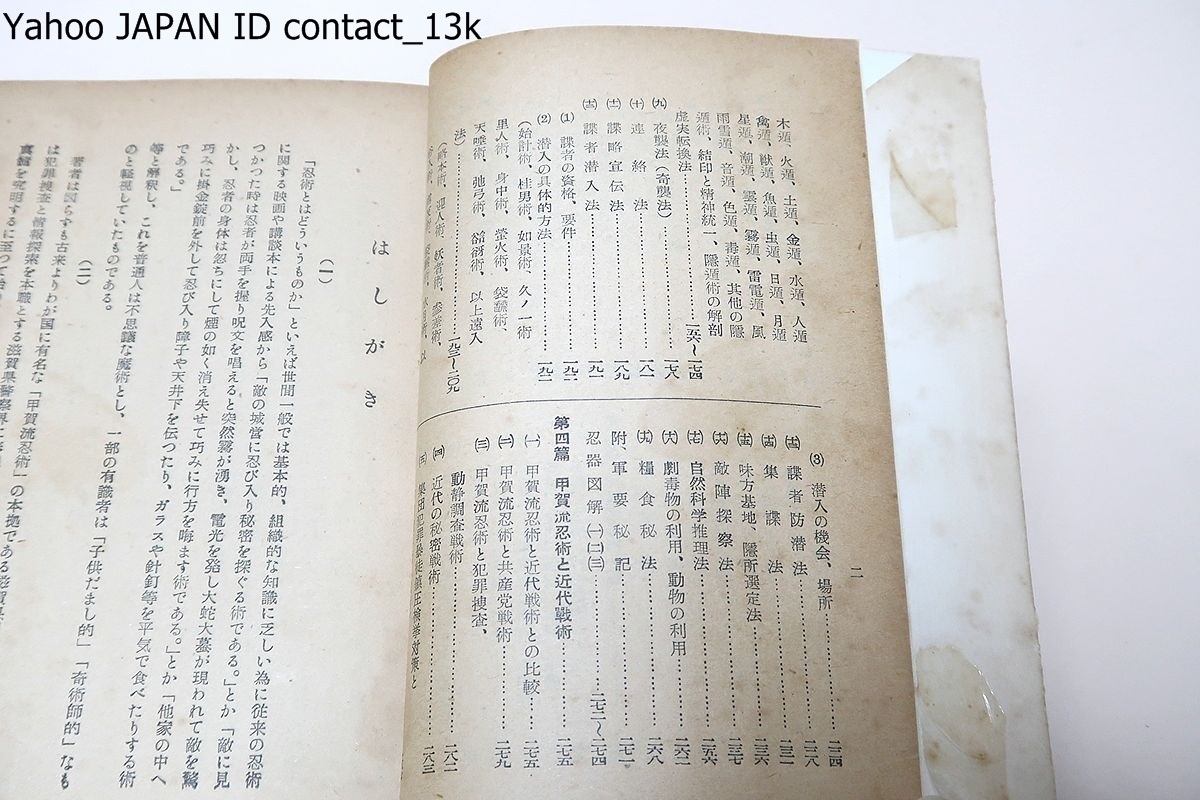 Yahoo JAPAN ID contact_13k
木遁、火遁、土遁、金遁、水遁、人遁
禽遁、獣遁、魚遁、虫遁、日遁、月遁
星遁、潮遁、雲遁、霧遁、雷電遁、風
雨雪遁、音遁、色遁、毒遁、其他の隠
遁術、結印と精神統一、隠遁術の解剖
虚実転換法……一五六〜一七四
(九) 夜襲法(奇襲法)……一七八
(十) 連絡法……一八一
(十一) 諜略宣伝法……一八九
(十二) 諜者潜入法……一九一
(1) 諜者の資格、要件……一九二
(2) 潜入の具体的方法……一九二
(始計術、桂男術、如景術、久ノ一術
里人術、身中術、蛍火術、袋飜術
天唾術、弛弓術、谽谺術、以上遠入
法)……一九三〜二〇九
二
(3) 潜入の機会、場所……二二四
(十三) 諜者防潜法……二二八
(十四) 集諜法……二三二
(十五) 味方基地、隠所選定法……二三六
(十六) 敵陣探察法……二三七
(十七) 自然科学推理法……二五六
(十八) 劇毒物の利用、動物の利用……二六二
(十九) 糧食秘法……二六八
附、軍要秘記……二七一
忍器図解(一)(二)(三)……二七二〜二七四
第四篇 甲賀流忍術と近代戦術……二七五
(一) 甲賀流忍術と近代戦術との比較……二七五
(二) 甲賀流忍術と共産党戦術……二七九
(三) 甲賀流忍術と犯罪捜査、
動静調査戦術……二八二
(四) 近代の秘密戦術……二八三
はしがき
(一)
「忍術とはどういうものか」といえば世間一般では基本的、組織的な知識に乏しい為に従来の忍術
に関する映画や講談本による先入感から「敵の城営に忍び入り秘密を探ぐる術である。」とか「敵に見
つかつた時は忍者が両手を握り呪文を唱えると突然霧が湧き、電光を発し大蛇大蟇が現われて敵を驚
かし、忍者の身体は忽ちにして煙の如く消え失せて巧みに行方を晦ます術である。」とか「他家の中へ
巧みに掛金錠前を外して忍び入り障子や天井下を伝つたり、ガラスや針釘等を平気で食べたりする術
である。」
等と解釈し、これを普通人は不思議な魔術とし、一部の有識者は「子供だまし的」「奇術師的」なも
のと軽視していたものである。
(二)
著者は図らずも古来よりわが国に有名な「甲賀流忍術」の本拠である滋賀県
は犯罪捜査と情報探索を本職とする滋賀県警察界に
真髄を究明するに至つて